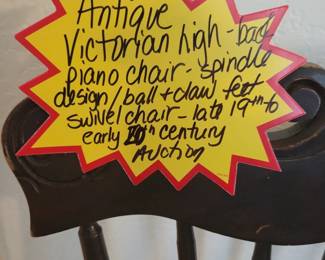 Antique
Victorian high-back
piano chair - spindle
design/ball + claw feet
swivel chair - late 19th to
early 20th century
Auction